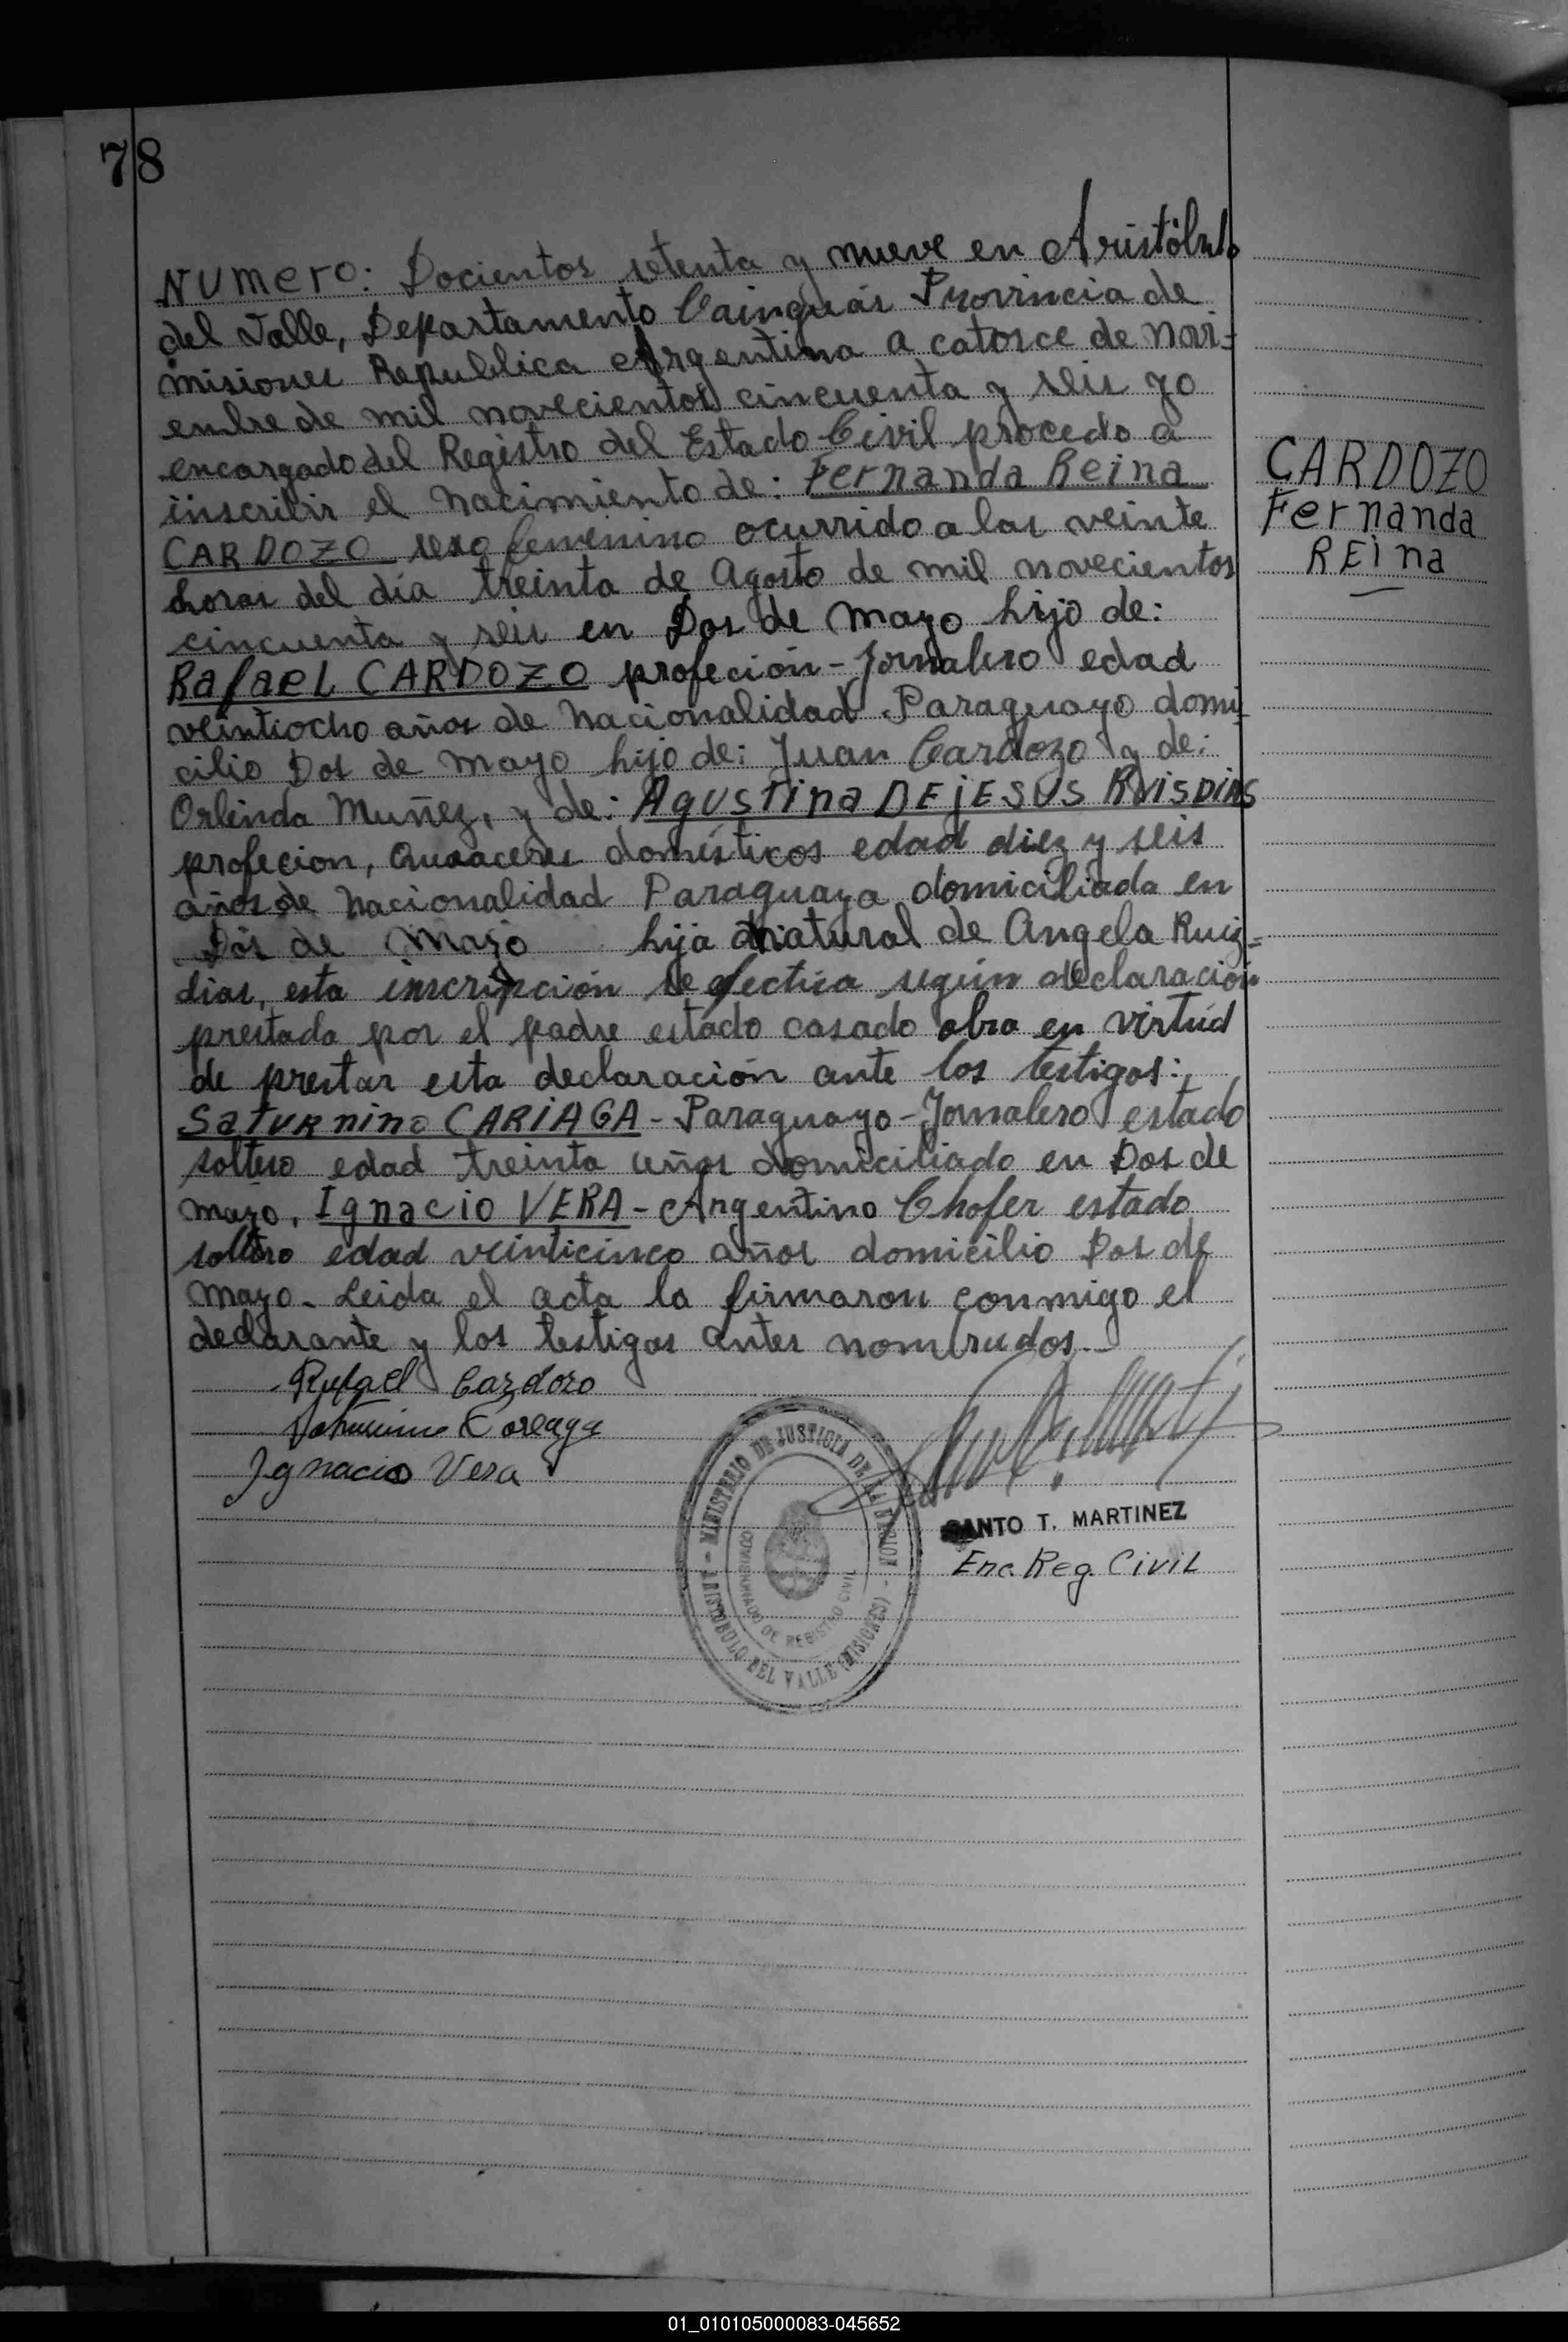 78
NUMERO: Docientos setenta y nueve en Aristóbulo
del Valle, Departamento Cainguás Provincia de
misiones Republica Argentina a catorce de Novi=
embre de mil novecientos cincuenta y seis yo
encargado del Registro del Estado Civil procedo a
inscribir el nacimiento de: Fernanda Reina
CARDOZO sexo femenino ocurrido a las veinte
horas del día treinta de Agosto de mil novecientos
cincuenta y seis en Dos de Mayo hijo de:
Rafael CARDOZO profeción - Jornalero edad
veintiocho años de nacionalidad Paraguayo domi
cilio Dos de Mayo hijo de: Juan Cardozo y de:
Orlinda Muñez, y de: Agustina DE JESUS RUISDIAS
profecion, Queaceres domésticos edad diez y seis
años de nacionalidad Paraguaya domiciliada en
Dos de Mayo hija natural de Angela Ruiz=
dias, esta inscripción se efectúa según declaración
prestada por el padre estado casado obra en virtud
de prestar esta declaración ante los testigos:
Saturnino CARIAGA - Paraguayo - Jornalero estado
soltero edad treinta años domiciliado en Dos de
mayo, Ignacio VERA - Argentino Chofer estado
soltero edad veinticinco años domicilio Dos de
Mayo - Leida el acta la firmaron conmigo el
declarante y los testigos antes nombrados.-
CARDOZO
Fernanda
REina
Rafael Cardozo
Saturnino Coreaga
Ignacio Vera
MINISTERIO DE JUSTICIA DE LA NACION
DE REGISTRO CIVIL
ARISTOBULO DEL VALLE (MISIONES)
SANTO T. MARTINEZ
Enc. Reg. CiviL
01_010105000083-045652